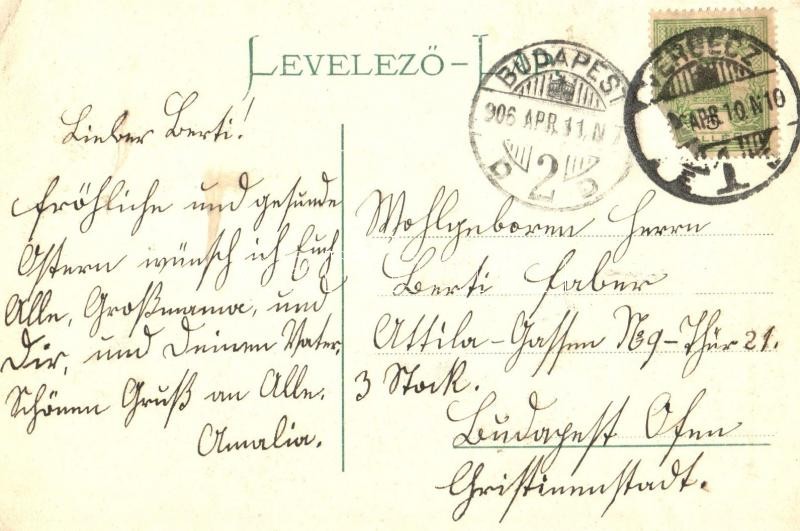 LEVELEZŐ-L
BUDAPEST
906 APR.11.N
2
D D
APR.10.N10
Lieber Berti!
Fröhliche und gesunde
Ostern wünsch ich Euch
Alle, Großmama, und
Dir, und Deinen Vater.
Schönen Gruß an Alle.
Amalia.
Wohlgeboren Herrn
Berti Faber
Attila-Gassen No 9-Thür 21.
3 Stock.
Budapest Ofen
Christinenstadt.